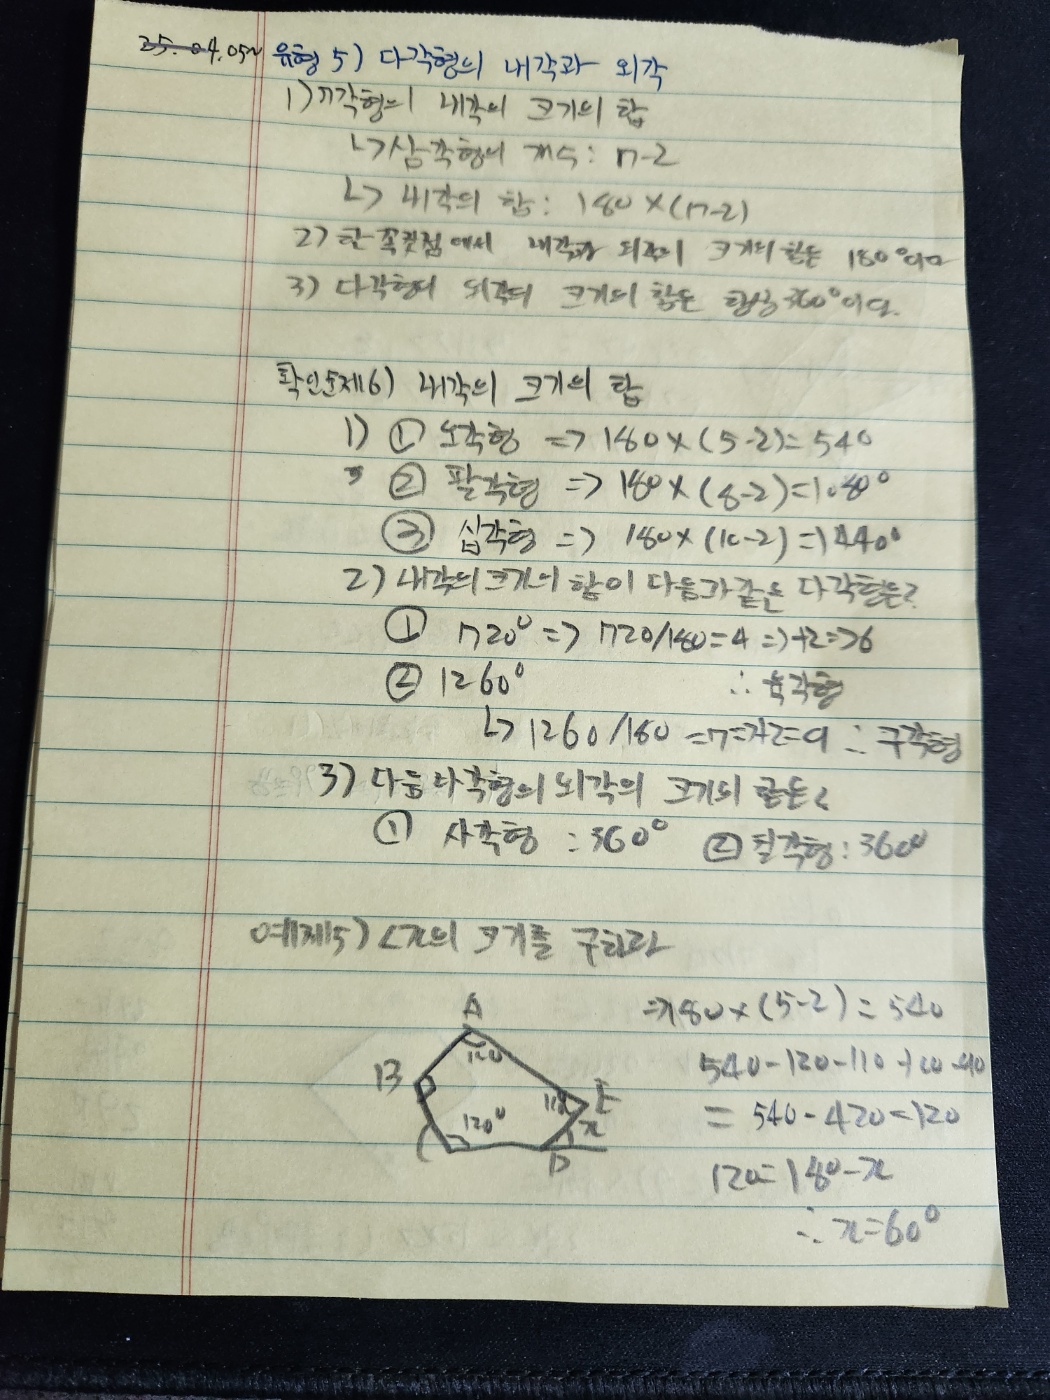 25.04.05~ 유형 5) 다각형의 내각과 외각
1) n각형의 내각의 크기의 합
↳ 삼각형의 개수: n-2
↳ 내각의 합: 180×(n-2)
2) 한 꼭짓점에서 내각과 외각의 크기의 합은 180°이다
3) 다각형의 외각의 크기의 합은 항상 360°이다.
확인문제6) 내각의 크기의 합
1) ① 오각형 => 180×(5-2)=540
② 팔각형 => 180×(8-2)=1080°
③ 십각형 => 180×(10-2)=1440°
2) 내각의 크기의 합이 다음과 같은 다각형은?
① 720° => 720/180=4 =>+2=>6
② 1260° ∴ 육각형
↳ 1260/180 =7=>+2=9 ∴ 구각형
3) 다음 다각형의 외각의 크기의 합은?
① 사각형 : 360° ② 칠각형 : 360°
예제5) ∠x의 크기를 구하라
=>180×(5-2)=540
A
120
B
540-120-110-100-90
110 E
120° x
= 540-420=120
C D
120=180-x
∴ x=60°